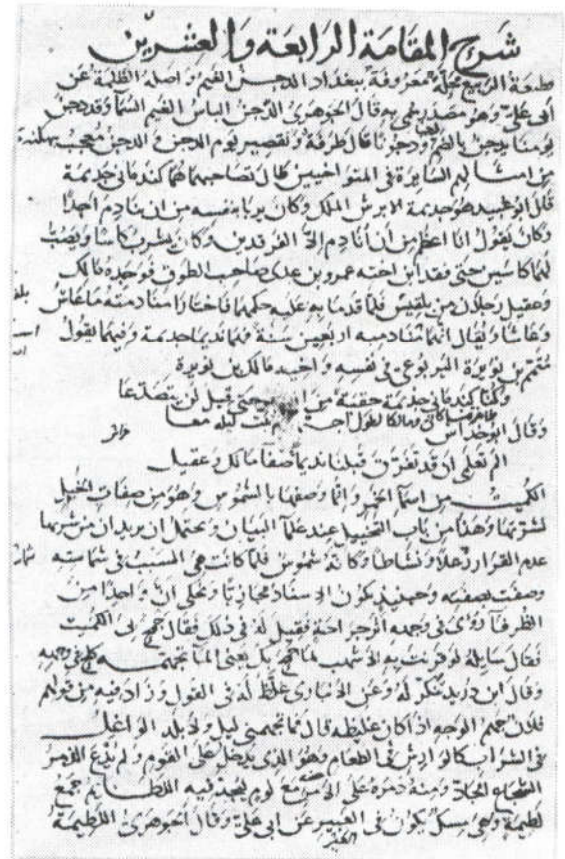 شرح المقامة الرابعة والعشرين
قطيعة الربيع محلة معروفة ببغداد الدجن الغيم واصله الظلمة عن
أبي علي وهو مصدر سمي به قال الجوهري الدجن الباس الغيم السمآ وقد دجن
يومنا يدجن بالضم دجنا ودجونا قال طرفة وتقصير يوم الدجن والدجن معجب ببهكنة
من امثالهم السايرة في المتواخيين طال تصاحبهما هما كندماني جذيمة
قال ابو عبيد هو جذيمة الابرش الملك وكان يربا بنفسه من ان ينادم احدا
وكان يقول انا اعظم من ان أنادم الا الفرقدين وكان يشرب كأسا ويصب
لهما كاسين حتى فقد ابن اخته عمرو بن عدي صاحب الطوق فوجده مالك
وعقيل رجلان من بلقين فلما قدما به عليه حكمهما فاختارا منادمته ما عاش
وعاشا ويقال انهما نادمه اربعين سنة فهما نديما جذيمة وفيهما يقول
متمم بن نويرة اليربوعي في نفسه واخيه مالك بن نويرة
وكنا كندماني جذيمة حقبة من حتى قيل لن يتصدعا
فلما تفرقنا كاني ومالكا لطول لم نبت ليلة معا
وقال ابو خراش
الم تعلمي ان قد تفرق قبلنا نديما صفآ مالك وعقيل
الكميت من اسمآ الخمر وانما وصفها بالشموس وهو من صفات الخيل
لشربها وهذا من باب التخييل عند علمآ البيان ويحتمل ان يريد ان من شربها
عدم القرار ونشاطا وكانه شموس فلما كانت هي المسبب في شماسته
وصفت بصفته وحينيذ يكون الاسناد مجازيا ويحكى ان واحدا من
الظرفآ رؤى في وجهه أثر جراحة فقيل له في ذلك فقال جمح بي الكميت
فقال سايله لو قرنت به الاشهب لما جمح بك يعني المآ تجهمه كلح في وجهه
وقال ابن دريد تنكر له وعن الانباري غلظ له في القول وزاد فيه من قولهم
فلان جهم الوجه اذا كان غليظه قال فما تجهمني ليل ولا بلد الواغل
في الشراب كالوارش في الطعام وهو الذي يدخل على القوم ولم يدع الذمر
الشجاع الجلاد ومنه ذمره على الامر مع لوم ليجد فيه اللطايم جمع
لطيمة وهي مسك يكون في العيير عن ابي علي وقال الجوهري اللطيمة
العير